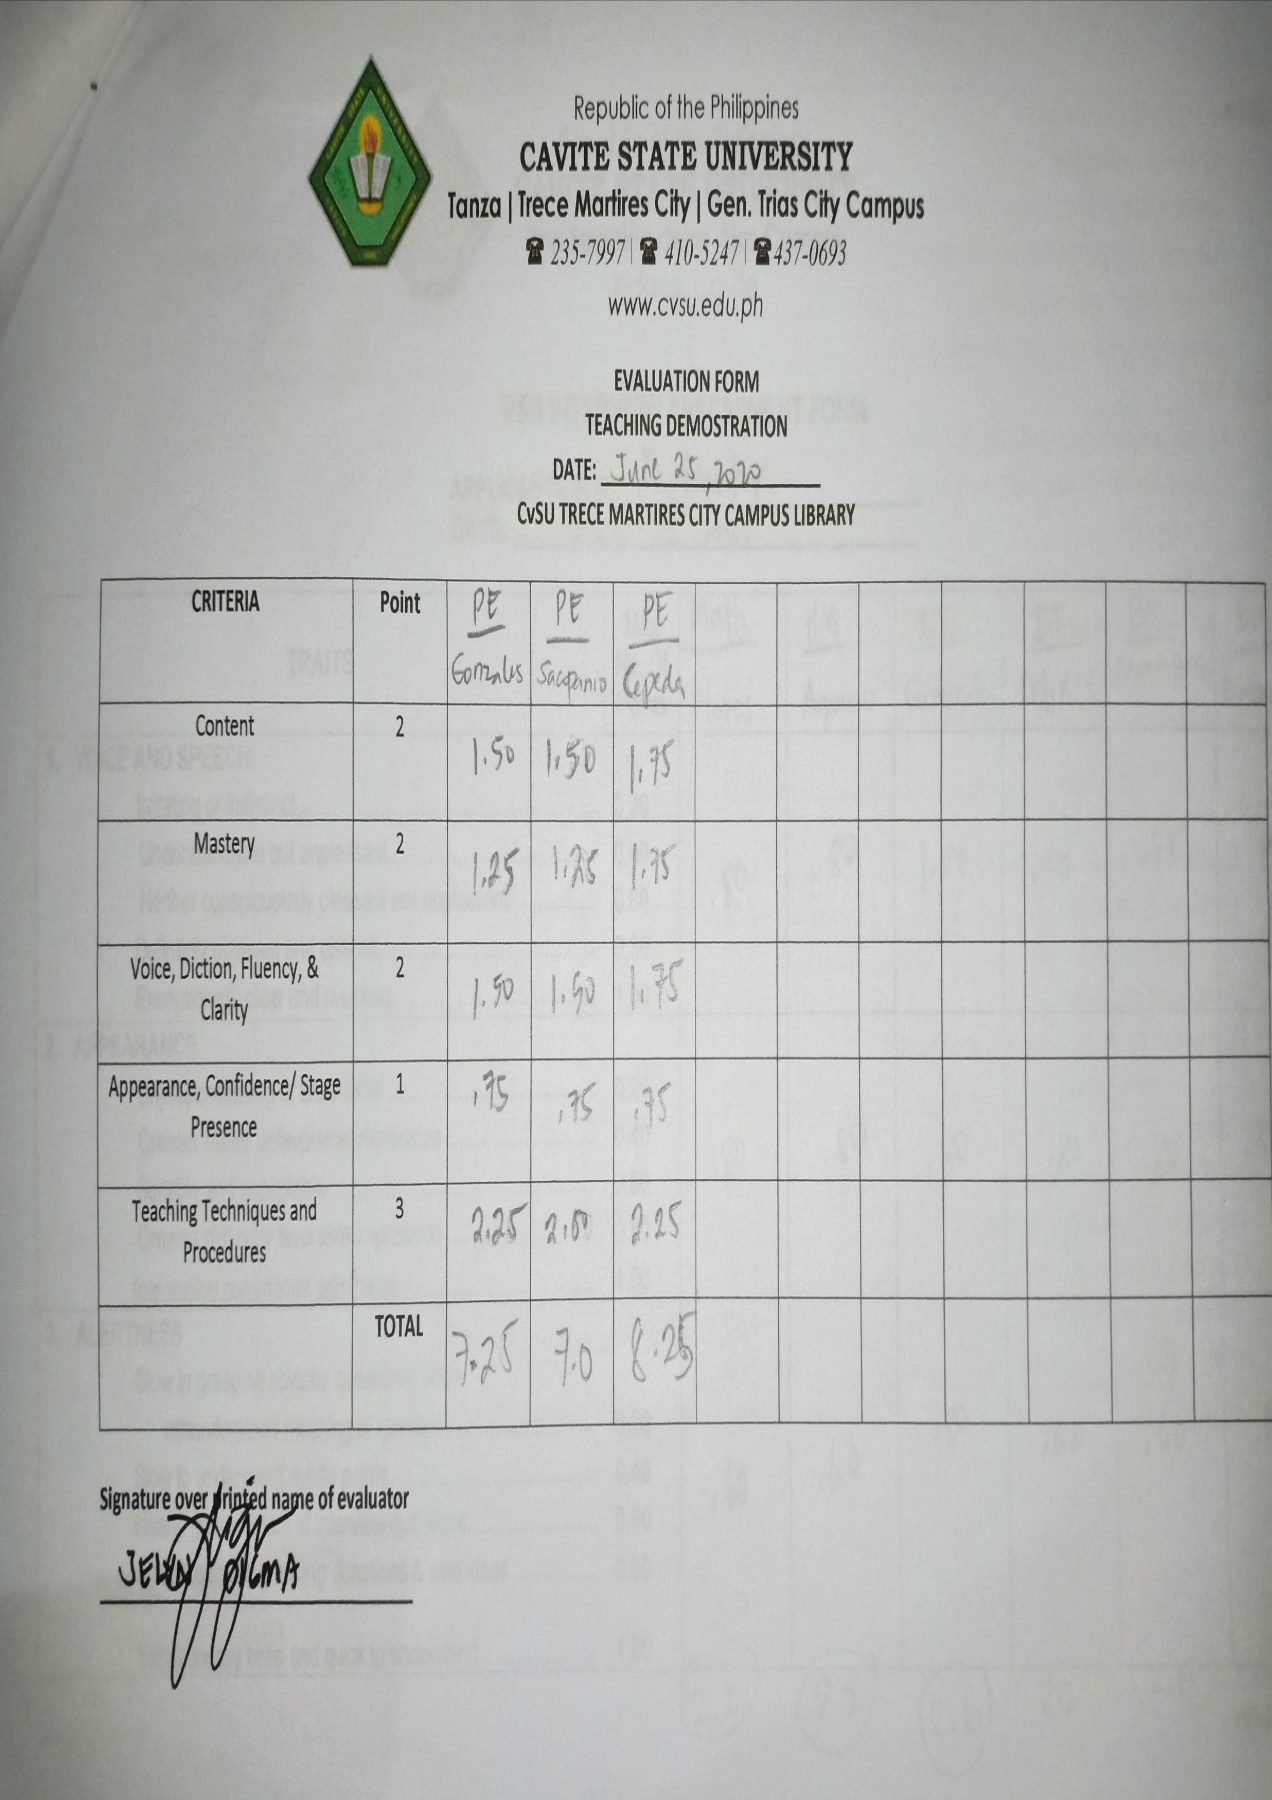 Republic of the Philippines
CAVITE STATE UNIVERSITY
Tanza | Trece Martires City | Gen. Trias City Campus
☎ 235-7997 | ☎ 410-5247 | ☎437-0693
www.cvsu.edu.ph
EVALUATION FORM
TEACHING DEMOSTRATION
DATE: June 25, 2020
CvSU TRECE MARTIRES CITY CAMPUS LIBRARY
CRITERIA Point PE PE PE
Gonzales Sacopanio Cepeda
Content 2 1.50 1.50 1.75
Mastery 2 1.25 1.25 1.75
Voice, Diction, Fluency, & 2 1.50 1.50 1.75
Clarity
Appearance, Confidence/ Stage 1 .75 .75 .75
Presence
Teaching Techniques and 3 2.25 2.00 2.25
Procedures
TOTAL 7.25 7.0 8.25
Signature over printed name of evaluator
JELYN DIGMA